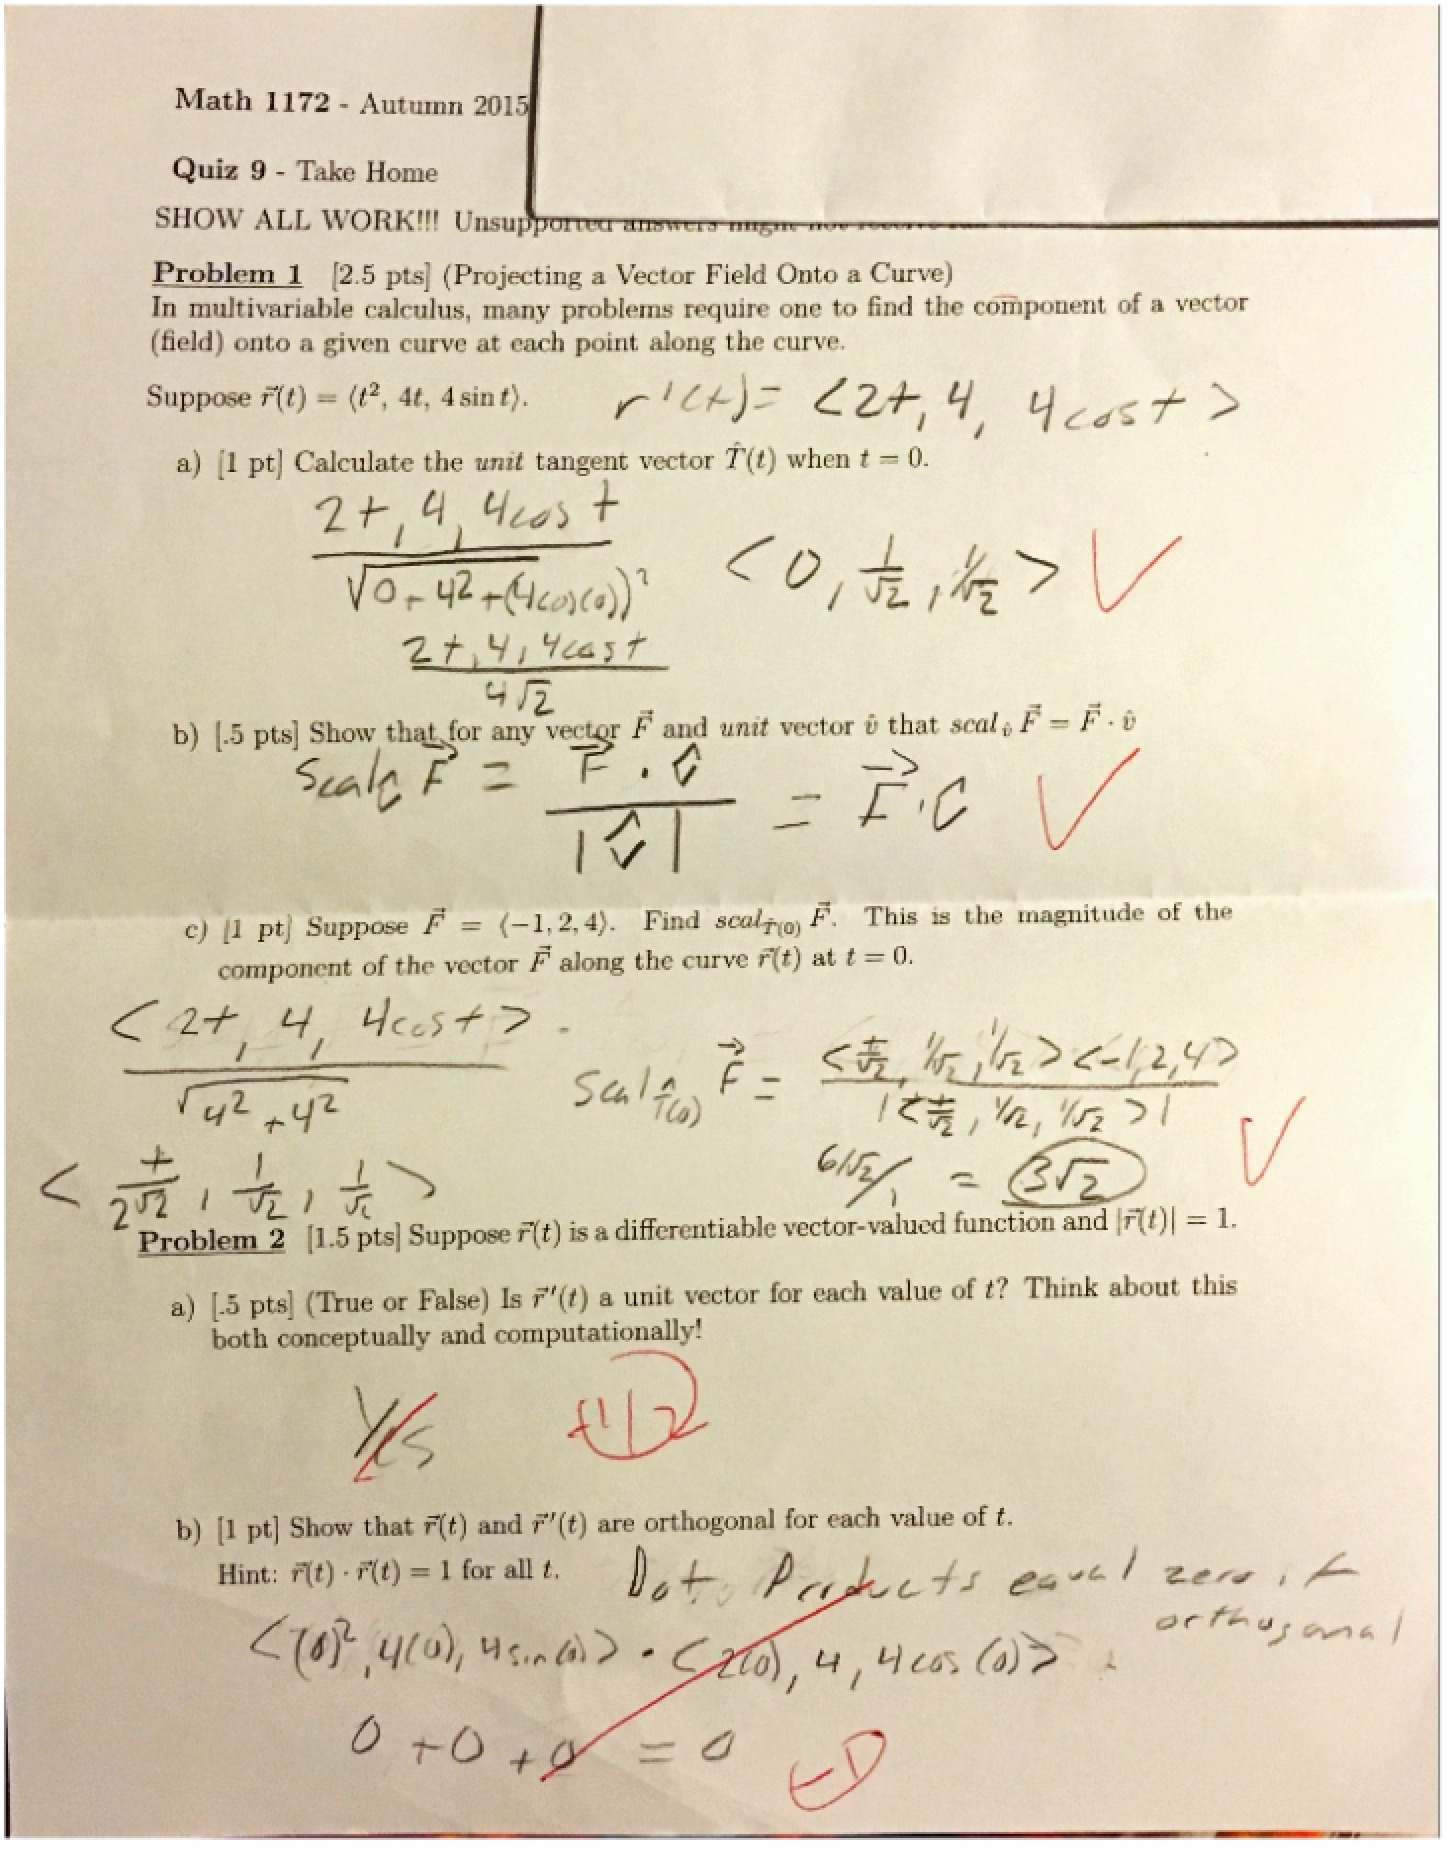 Math 1172 - Autumn 2015
Quiz 9 - Take Home
SHOW ALL WORK!!! Unsupported answers might not receive
Problem 1 [2.5 pts] (Projecting a Vector Field Onto a Curve)
In multivariable calculus, many problems require one to find the component of a vector
(field) onto a given curve at each point along the curve.
Suppose r⃗(t) = ⟨t², 4t, 4 sin t⟩. r'(t) = <2t, 4, 4cost>
a) [1 pt] Calculate the unit tangent vector T̂(t) when t = 0.
2t, 4, 4cos t
√0+4²+(4cos(0))² <0, 1/√2, 1/√2>
2t, 4, 4cost
4√2
b) [.5 pts] Show that for any vector F⃗ and unit vector v̂ that scal_v̂ F⃗ = F⃗ · v̂
Scal_v̂ F⃗ = F⃗ · v̂ / |v̂| = F⃗ · v̂
c) [1 pt] Suppose F⃗ = ⟨−1, 2, 4⟩. Find scal_T̂(0) F⃗. This is the magnitude of the
component of the vector F⃗ along the curve r⃗(t) at t = 0.
<2t, 4, 4cost>
√4²+4²
Scal_T̂(0) F⃗ = <t/√2, 1/√2, 1/√2> <-1,2,4> / |<t/√2, 1/√2, 1/√2>|
<t/2√2, 1/√2, 1/√2>
6/√2/1 = 3√2
Problem 2 [1.5 pts] Suppose r⃗(t) is a differentiable vector-valued function and |r⃗(t)| = 1.
a) [.5 pts] (True or False) Is r⃗ ′(t) a unit vector for each value of t? Think about this
both conceptually and computationally!
Yes -1/2
b) [1 pt] Show that r⃗(t) and r⃗ ′(t) are orthogonal for each value of t.
Hint: r⃗(t) · r⃗(t) = 1 for all t. Dot Products equal zero if
orthogonal
<(0)², 4(0), 4sin(0)> · <2(0), 4, 4cos(0)>
0 + 0 + 0 = 0 -1